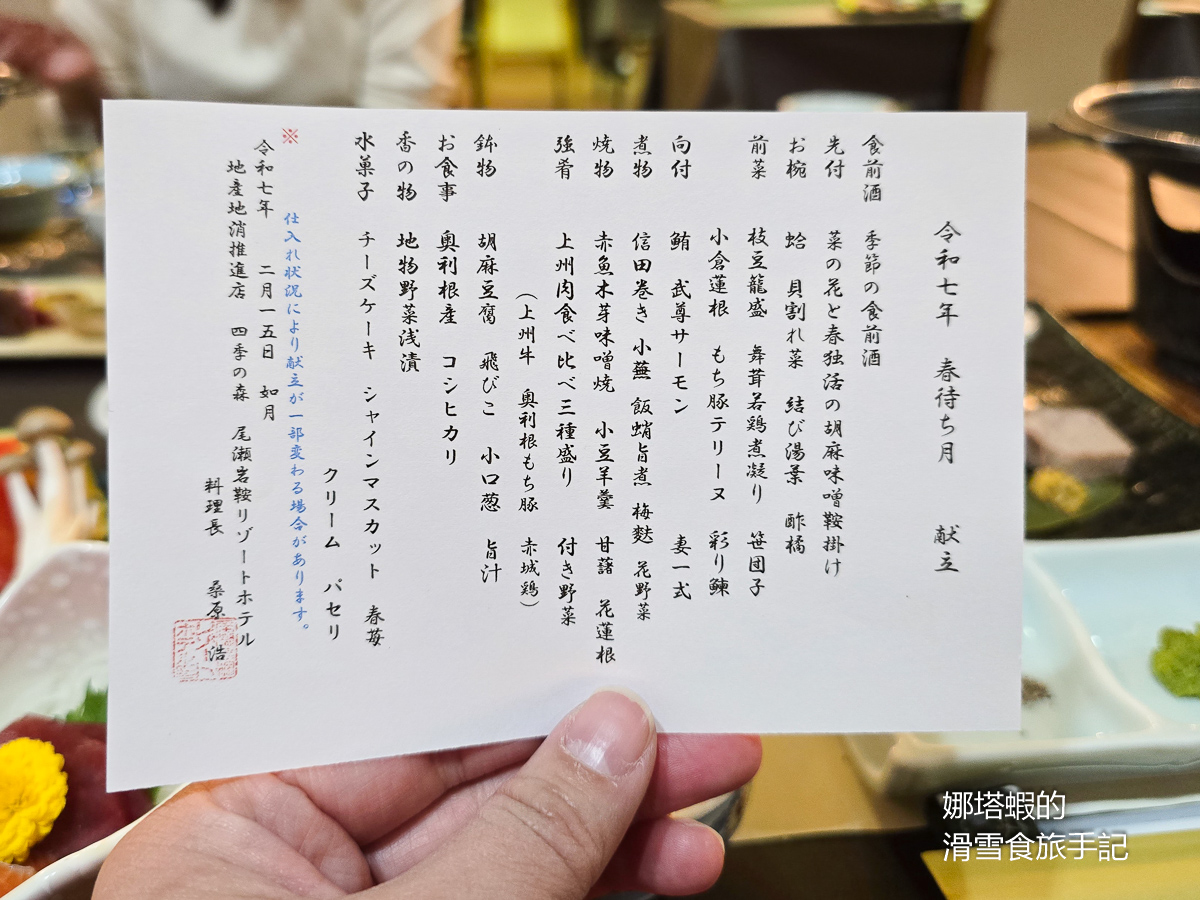 令和七年　春待ち月　献立
食前酒　季節の食前酒
先付　菜の花と春独活の胡麻味噌鞍掛け
お椀　蛤　貝割れ菜　結び湯葉　酢橘
前菜　枝豆籠盛　舞茸若鶏煮凝り　笹団子
小倉蓮根　もち豚テリーヌ　彩り鰊
向付　鮪　武尊サーモン　妻一式
煮物　信田巻き　小蕪　飯蛸旨煮　梅麩　花野菜
焼物　赤魚木芽味噌焼　小豆羊羹　甘藷　花蓮根
強肴　上州肉食べ比べ三種盛り　付き野菜
（上州牛　奥利根もち豚　赤城鶏）
鉢物　胡麻豆腐　飛びこ　小口葱　旨汁
お食事　奥利根産　コシヒカリ
香の物　地物野菜浅漬
水菓子　チーズケーキ　シャインマスカット　春苺
クリーム　パセリ
※　仕入れ状況により献立が一部変わる場合があります。
令和七年　二月一五日　如月
地産地消推進店　四季の森　尾瀬岩鞍リゾートホテル
料理長　桑原　浩
娜塔蝦的
滑雪食旅手記